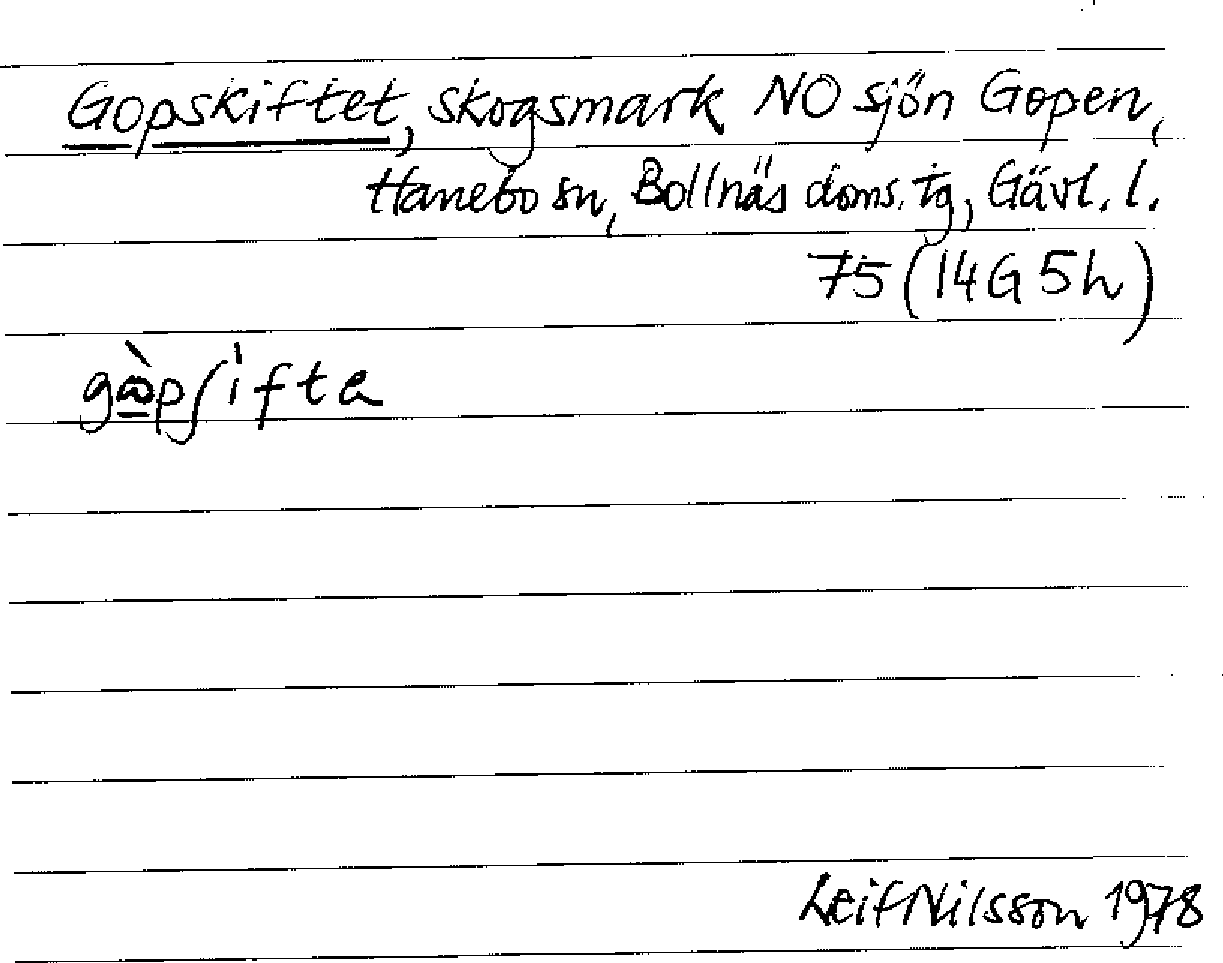 Gopskiftet, skogsmark NO sjön Gopen,
Hanebo sn, Bollnäs doms. tg, Gävl. l.
75 (14G 5h)
gὼpʃìfta
Leif Nilsson 1978